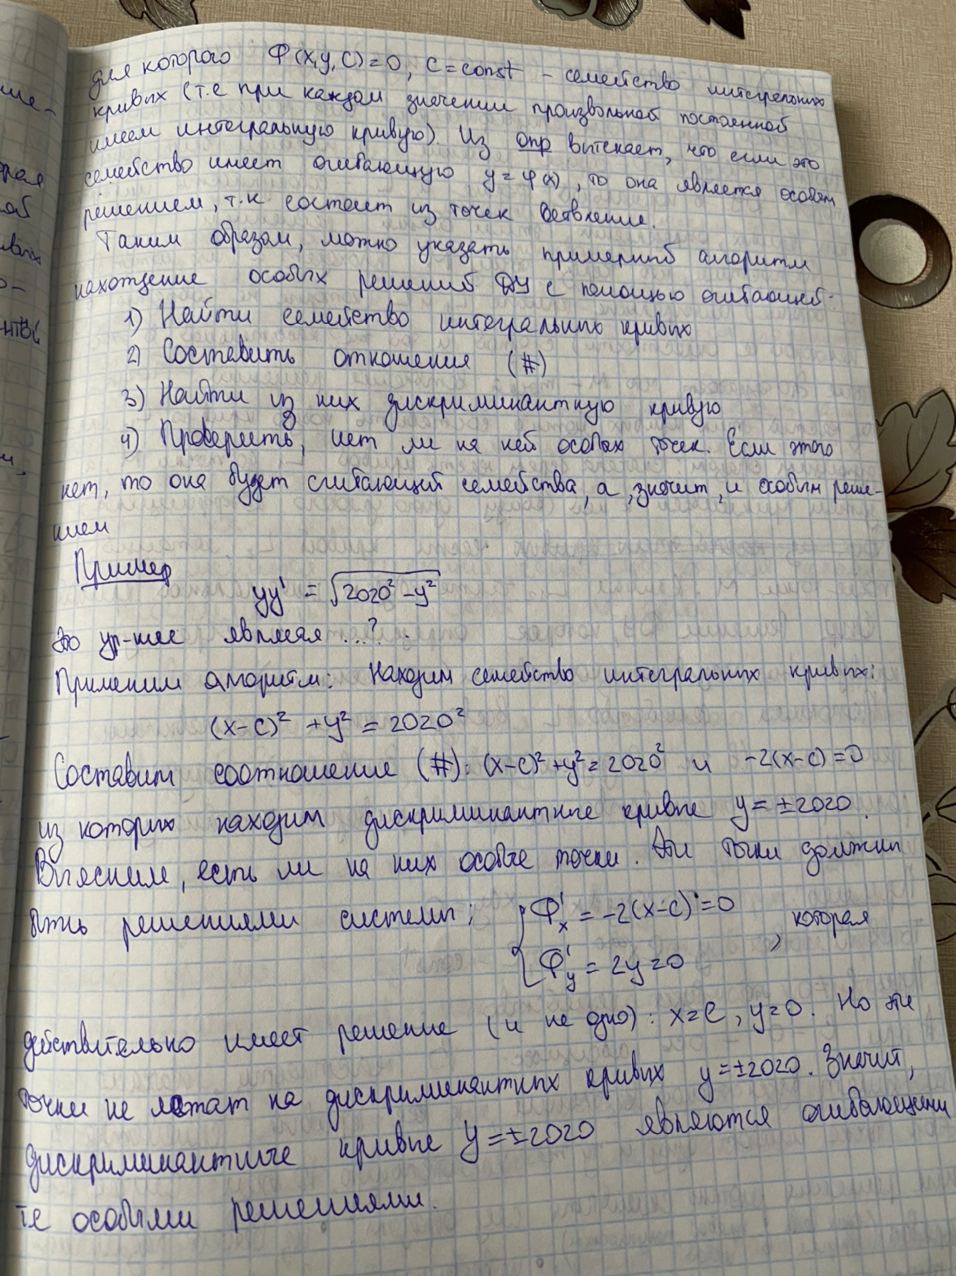 для которого Ф(x,y,C)=0, C=const – семейство интегральных
кривых (т.е при каждом значении произвольной постоянной
имеем интегральную кривую). Из опр вытекает, что если это
семейство имеет огибающую y=φ(x), то она является особым
решением, т.к. состоит из точек ветвления.
Таким образом, можно указать примерный алгоритм
нахождение особых решений ДУ с помощью огибающей:
1) Найти семейство интегральных кривых
2) Составить отношения (#)
3) Найти из них дискриминантную кривую
4) Проверить, нет ли на ней особых точек. Если этого
нет, то она будет огибающей семейства, а, значит, и особым реше-
нием
Пример
yy' = √(2020² – y²)
Это ур-ние является ...?
Применим алгоритм: Находим семейство интегральных кривых:
(x–c)² + y² = 2020²
Составим соотношение (#): (x–c)²+y²=2020² и –2(x–c)=0
из которых находим дискриминантные кривые y=±2020.
Выясним, есть ли на них особые точки. Эти точки должны
быть решениями системы: { Ф'x = –2(x–c)=0
Ф'y = 2y=0 , которая
действительно имеет решение (и не одно): x=c, y=0. Но эти
точки не лежат на дискриминантных кривых y=±2020. Значит,
дискриминантные кривые y=±2020 являются огибающими
те особыми решениями.